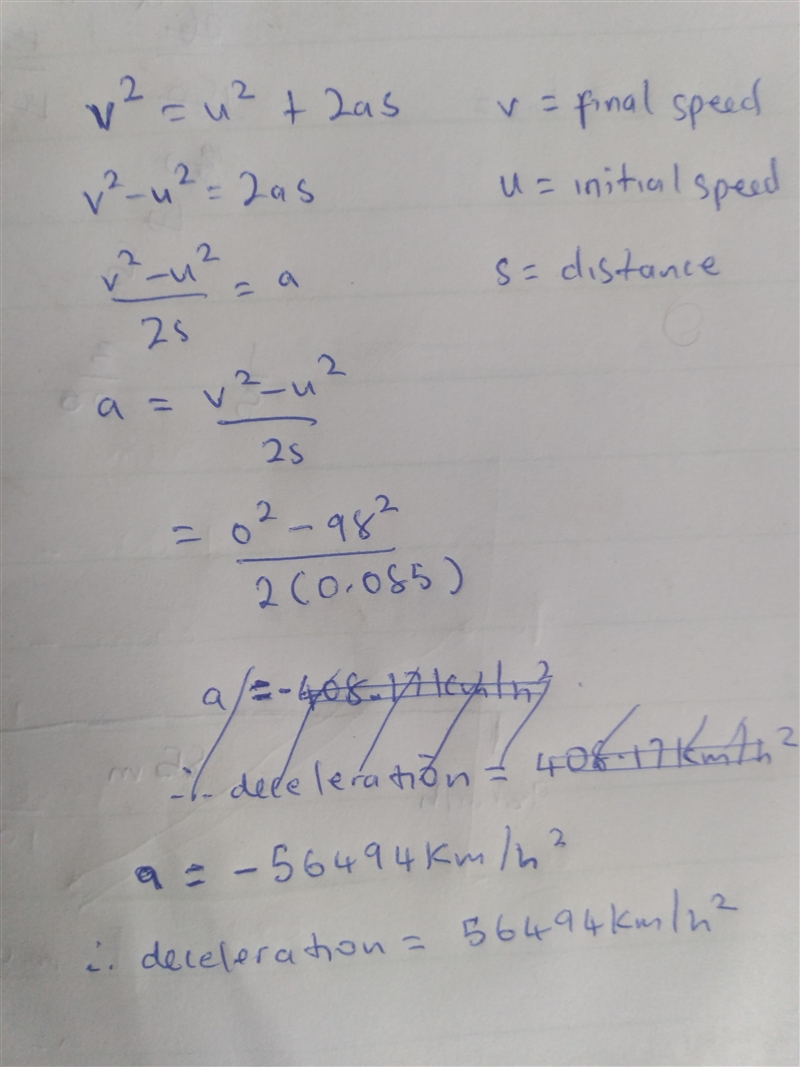 v² = u² + 2as v = final speed
v² – u² = 2as u = initial speed
v² – u² / 2s = a s = distance
a = v² – u² / 2s
= 0² – 98² / 2(0.085)
a = -408.17 km/h²
∴ deceleration = 408.17 km/h²
a = – 56494 km/h²
∴ deceleration = 56494 km/h²